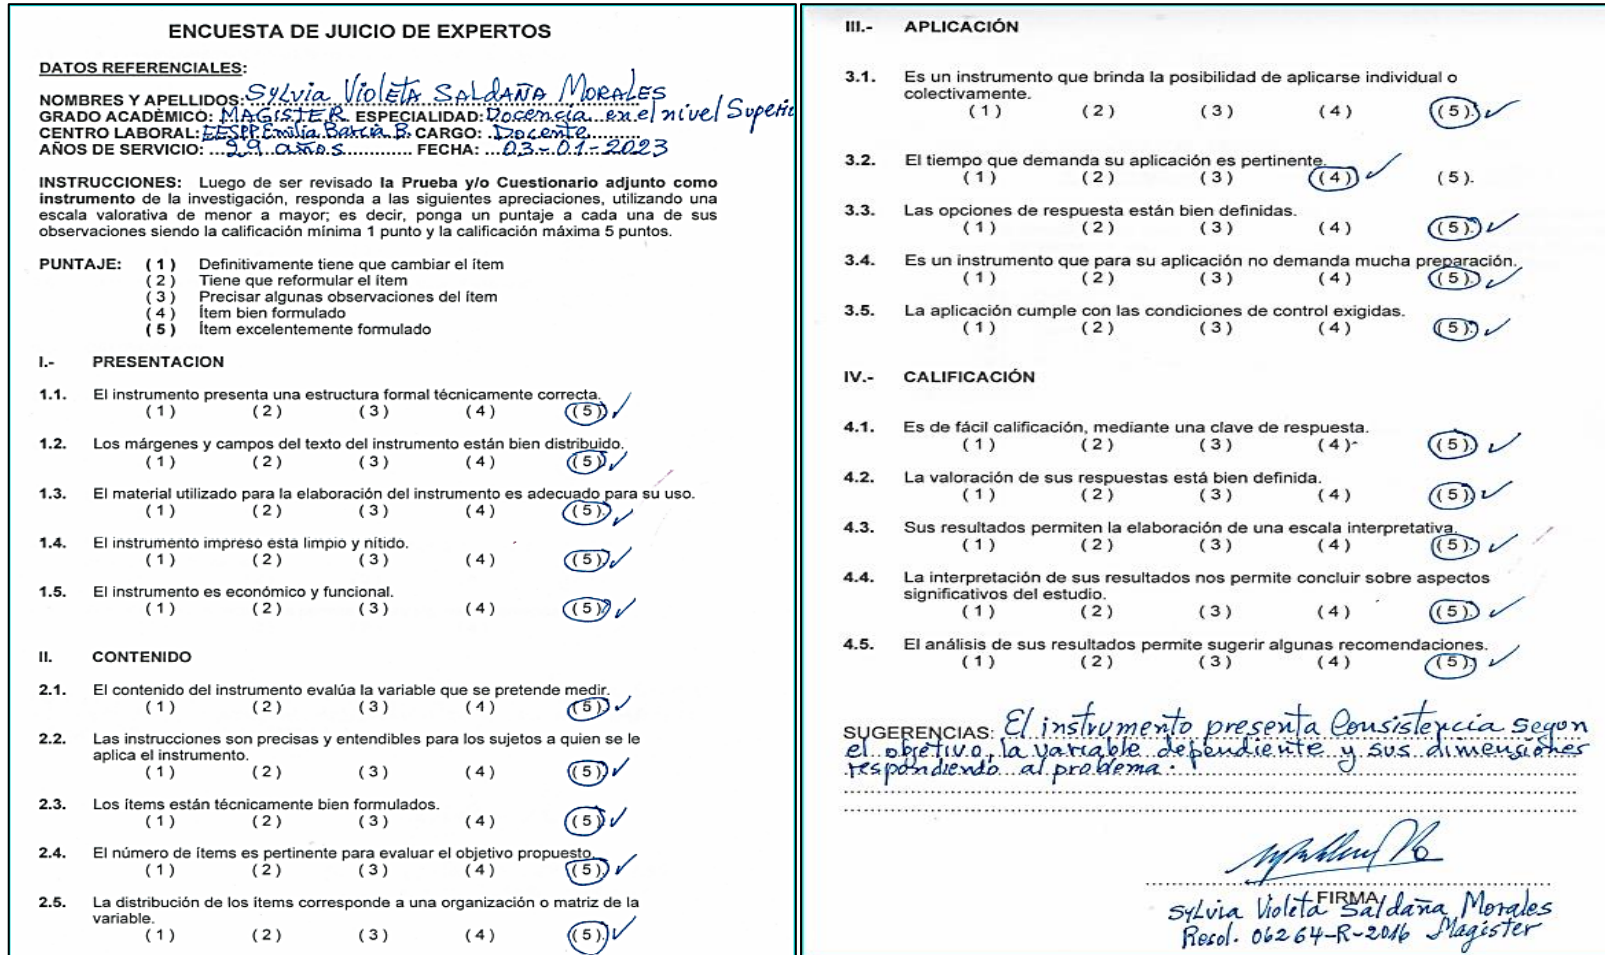 ENCUESTA DE JUICIO DE EXPERTOS
DATOS REFERENCIALES:
NOMBRES Y APELLIDOS: Sylvia Violeta Saldaña Morales
GRADO ACADÈMICO: MAGISTER ESPECIALIDAD: Docencia en el nivel Superio
CENTRO LABORAL: EESPP Emilia Barcia B. CARGO: Docente
AÑOS DE SERVICIO: 29 años FECHA: 03-01-2023
INSTRUCCIONES: Luego de ser revisado la Prueba y/o Cuestionario adjunto como
instrumento de la investigación, responda a las siguientes apreciaciones, utilizando una
escala valorativa de menor a mayor; es decir, ponga un puntaje a cada una de sus
observaciones siendo la calificación mínima 1 punto y la calificación máxima 5 puntos.
PUNTAJE: ( 1 ) Definitivamente tiene que cambiar el ítem
( 2 ) Tiene que reformular el ítem
( 3 ) Precisar algunas observaciones del ítem
( 4 ) Ítem bien formulado
( 5 ) Ítem excelentemente formulado
I.- PRESENTACION
1.1. El instrumento presenta una estructura formal técnicamente correcta.
( 1 ) ( 2 ) ( 3 ) ( 4 ) ( 5 ).
1.2. Los márgenes y campos del texto del instrumento están bien distribuido.
( 1 ) ( 2 ) ( 3 ) ( 4 ) ( 5 ).
1.3. El material utilizado para la elaboración del instrumento es adecuado para su uso.
( 1 ) ( 2 ) ( 3 ) ( 4 ) ( 5 ).
1.4. El instrumento impreso esta limpio y nítido.
( 1 ) ( 2 ) ( 3 ) ( 4 ) ( 5 ).
1.5. El instrumento es económico y funcional.
( 1 ) ( 2 ) ( 3 ) ( 4 ) ( 5 ).
II. CONTENIDO
2.1. El contenido del instrumento evalúa la variable que se pretende medir.
( 1 ) ( 2 ) ( 3 ) ( 4 ) ( 5 ).
2.2. Las instrucciones son precisas y entendibles para los sujetos a quien se le
aplica el instrumento.
( 1 ) ( 2 ) ( 3 ) ( 4 ) ( 5 ).
2.3. Los ítems están técnicamente bien formulados.
( 1 ) ( 2 ) ( 3 ) ( 4 ) ( 5 ).
2.4. El número de ítems es pertinente para evaluar el objetivo propuesto.
( 1 ) ( 2 ) ( 3 ) ( 4 ) ( 5 ).
2.5. La distribución de los ítems corresponde a una organización o matriz de la
variable.
( 1 ) ( 2 ) ( 3 ) ( 4 ) ( 5 ).
III.- APLICACIÓN
3.1. Es un instrumento que brinda la posibilidad de aplicarse individual o
colectivamente.
( 1 ) ( 2 ) ( 3 ) ( 4 ) ( 5 ).
3.2. El tiempo que demanda su aplicación es pertinente.
( 1 ) ( 2 ) ( 3 ) ( 4 ) ( 5 ).
3.3. Las opciones de respuesta están bien definidas.
( 1 ) ( 2 ) ( 3 ) ( 4 ) ( 5 ).
3.4. Es un instrumento que para su aplicación no demanda mucha preparación.
( 1 ) ( 2 ) ( 3 ) ( 4 ) ( 5 ).
3.5. La aplicación cumple con las condiciones de control exigidas.
( 1 ) ( 2 ) ( 3 ) ( 4 ) ( 5 ).
IV.- CALIFICACIÓN
4.1. Es de fácil calificación, mediante una clave de respuesta.
( 1 ) ( 2 ) ( 3 ) ( 4 ) ( 5 ).
4.2. La valoración de sus respuestas está bien definida.
( 1 ) ( 2 ) ( 3 ) ( 4 ) ( 5 ).
4.3. Sus resultados permiten la elaboración de una escala interpretativa.
( 1 ) ( 2 ) ( 3 ) ( 4 ) ( 5 ).
4.4. La interpretación de sus resultados nos permite concluir sobre aspectos
significativos del estudio.
( 1 ) ( 2 ) ( 3 ) ( 4 ) ( 5 ).
4.5. El análisis de sus resultados permite sugerir algunas recomendaciones.
( 1 ) ( 2 ) ( 3 ) ( 4 ) ( 5 ).
SUGERENCIAS: El instrumento presenta Consistencia segun
el objetivo, la variable dependiente y sus dimensiones
respondiendo al problema.
FIRMA
Sylvia Violeta Saldaña Morales
Resol. 06264-R-2016 Magister